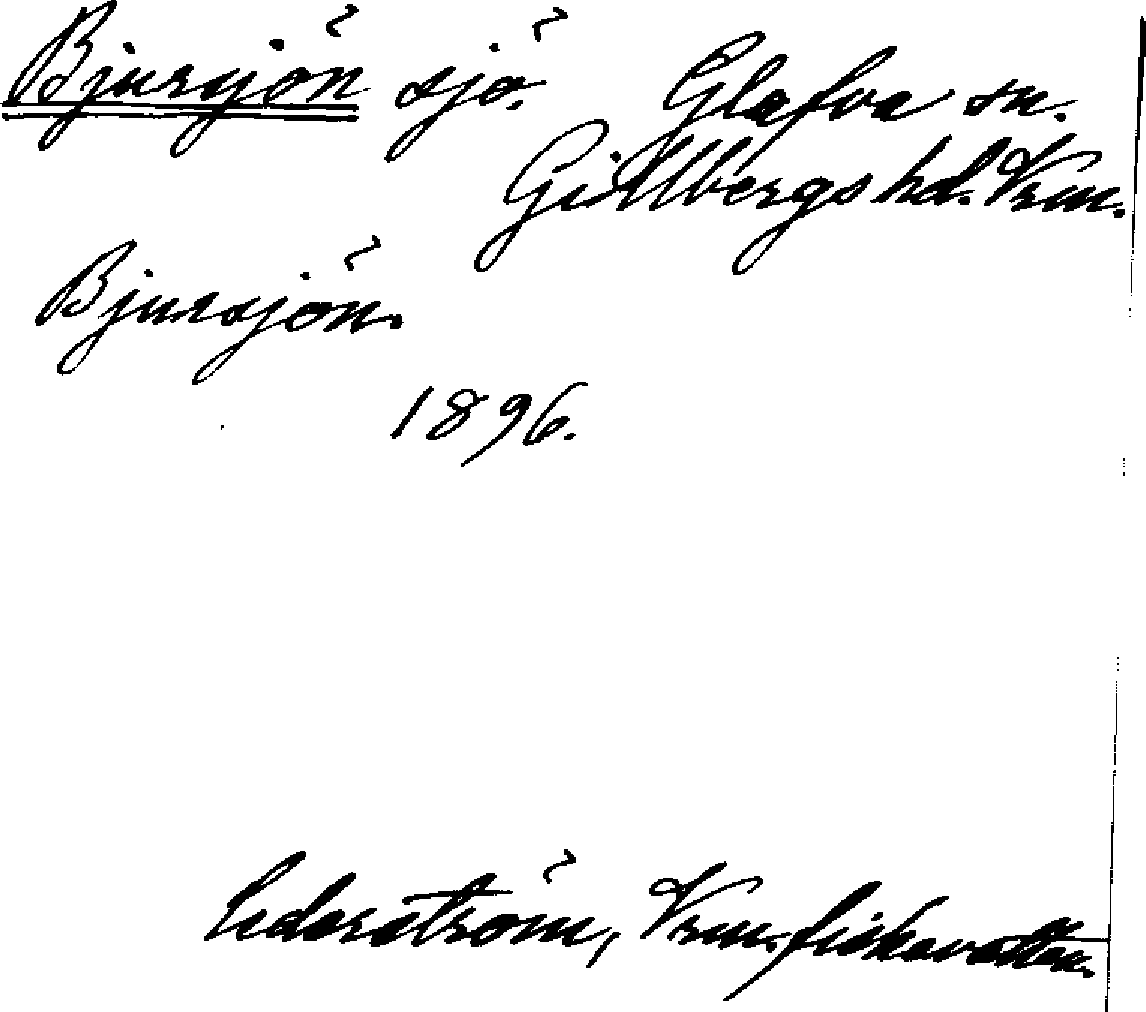 Bjursjön sjö. Glafva sn.
Gillbergs hd. Vrm.
Bjursjön.
1896.
Cederström, Vrm. fiskevatten.